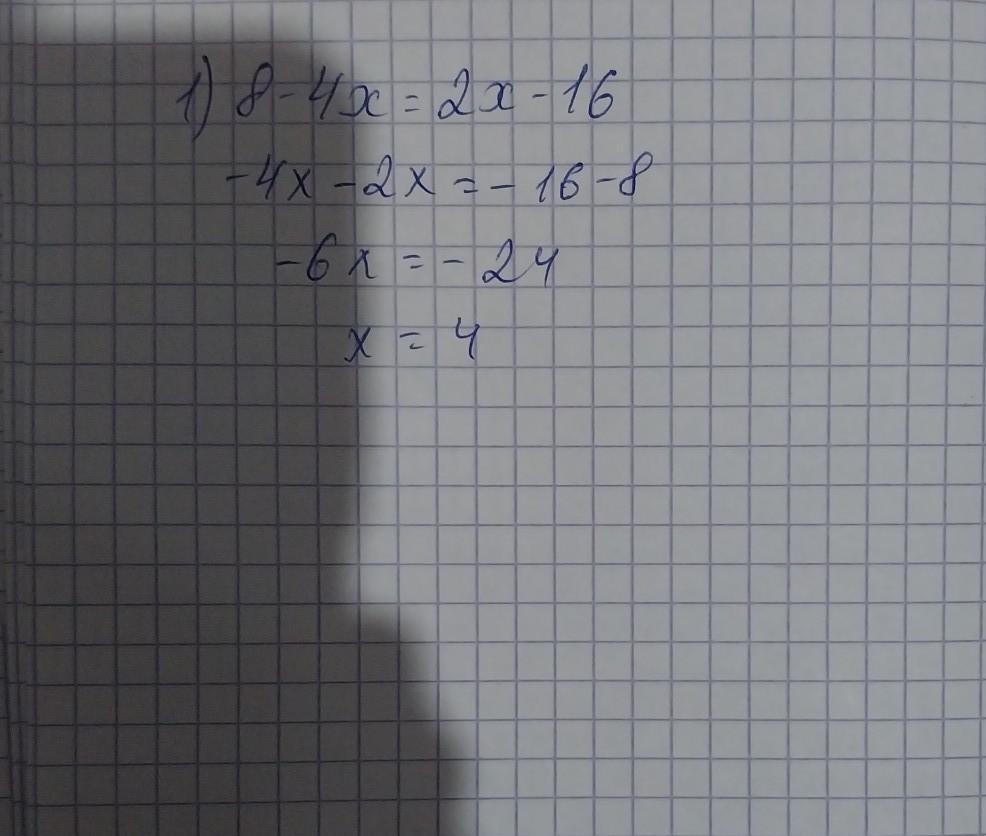 1) 8-4x=2x-16
-4x-2x=-16-8
-6x=-24
x=4